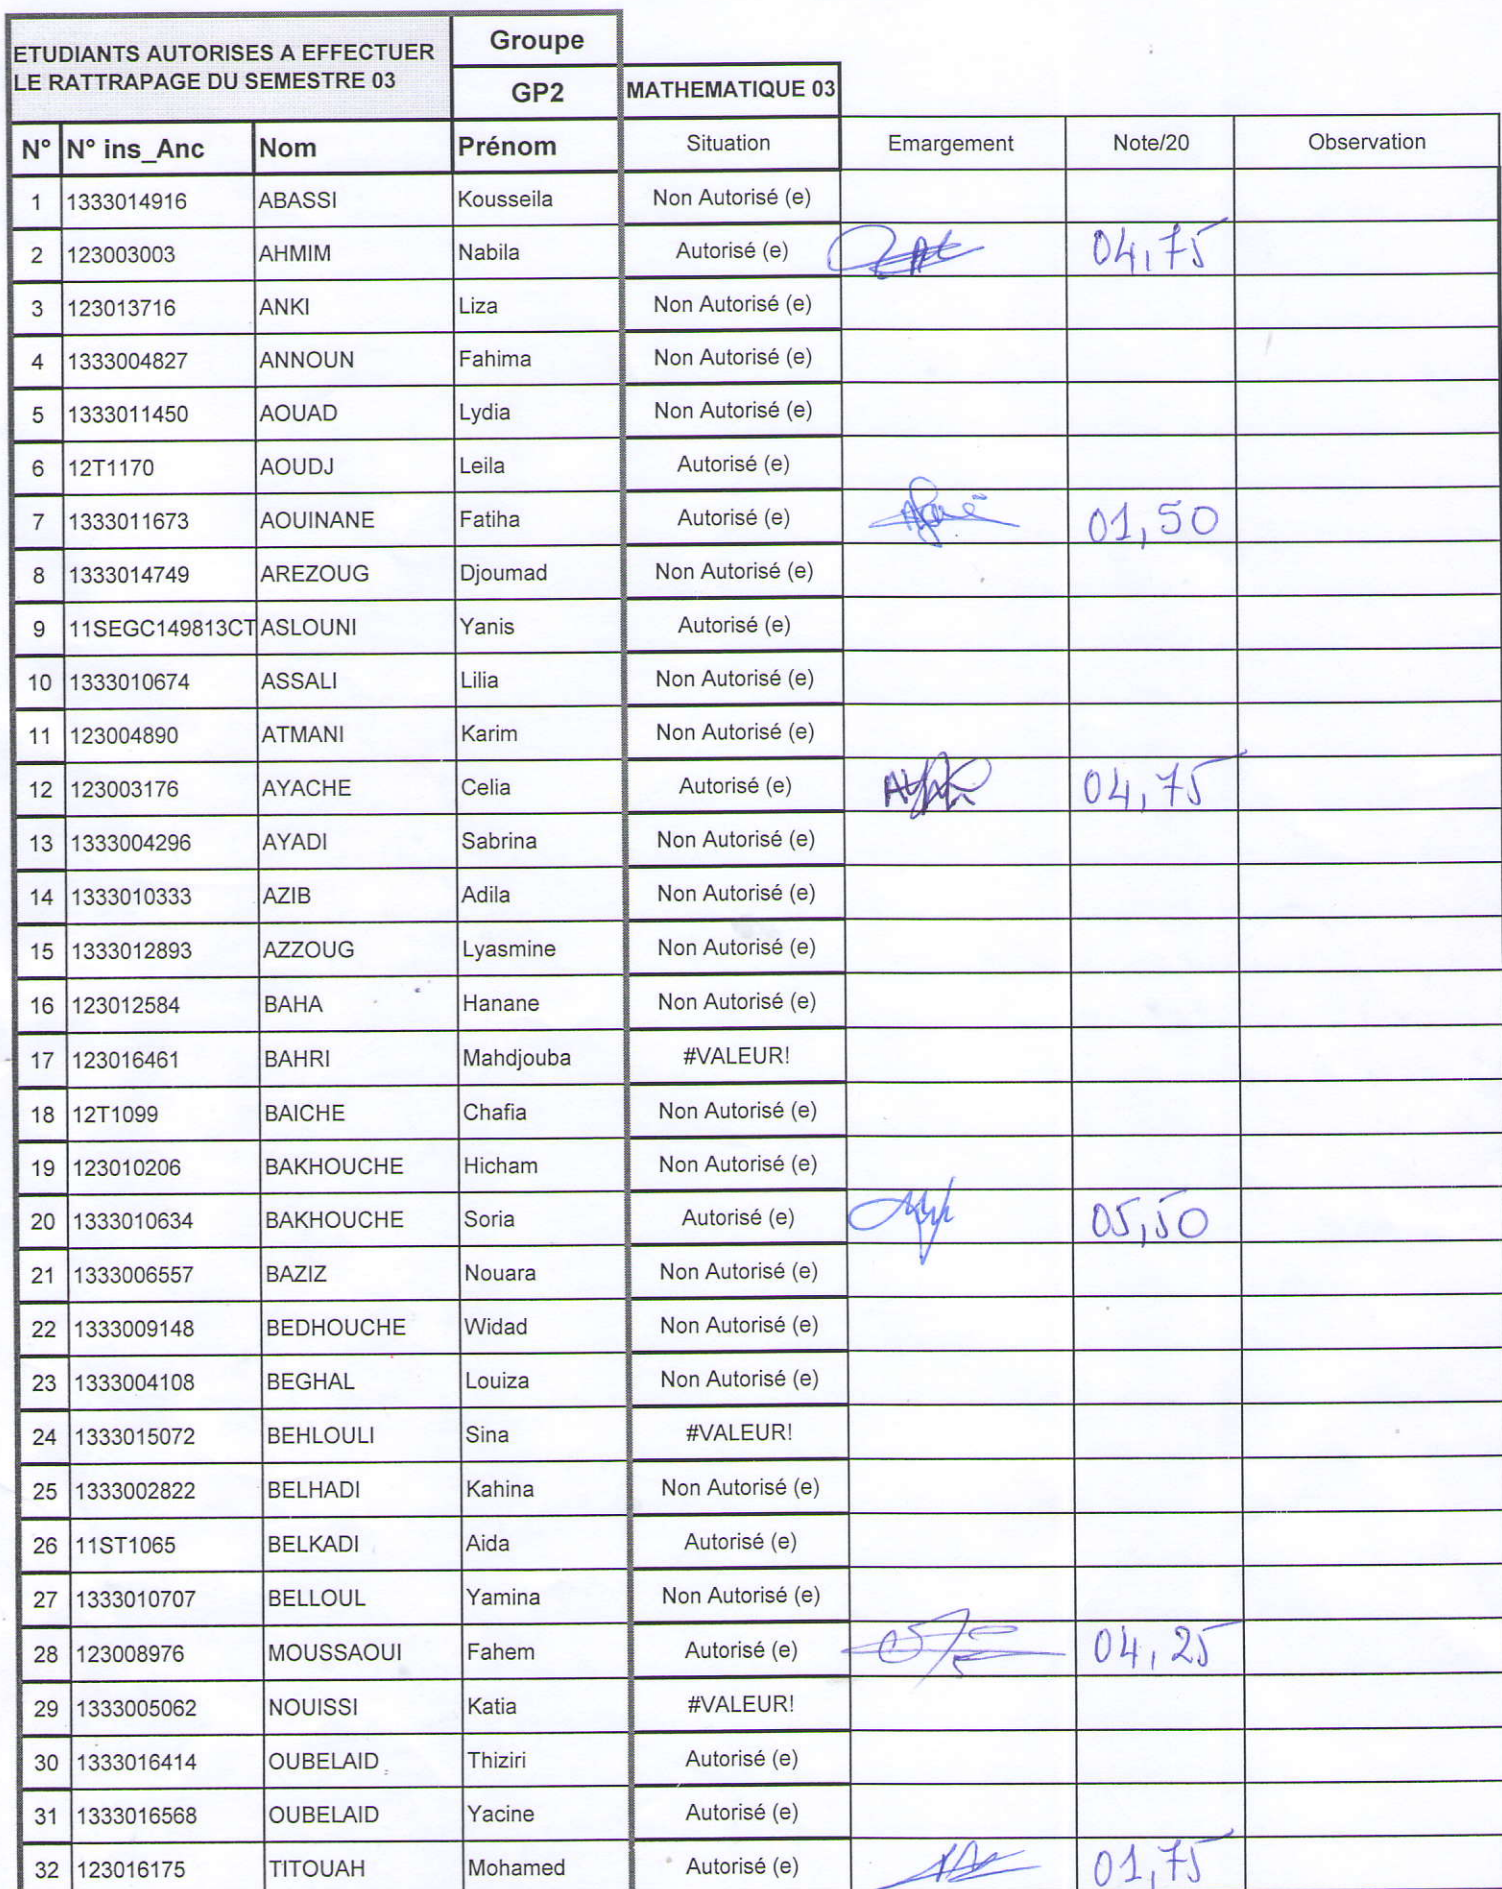 ETUDIANTS AUTORISES A EFFECTUER LE RATTRAPAGE DU SEMESTRE 03
Groupe
GP2 MATHEMATIQUE 03
N° N° ins_Anc Nom Prénom Situation Emargement Note/20 Observation
1 1333014916 ABASSI Kousseila Non Autorisé (e)
2 123003003 AHMIM Nabila Autorisé (e) 04,75
3 123013716 ANKI Liza Non Autorisé (e)
4 1333004827 ANNOUN Fahima Non Autorisé (e)
5 1333011450 AOUAD Lydia Non Autorisé (e)
6 12T1170 AOUDJ Leila Autorisé (e)
7 1333011673 AOUINANE Fatiha Autorisé (e) 01,50
8 1333014749 AREZOUG Djoumad Non Autorisé (e)
9 11SEGC149813CT ASLOUNI Yanis Autorisé (e)
10 1333010674 ASSALI Lilia Non Autorisé (e)
11 123004890 ATMANI Karim Non Autorisé (e)
12 123003176 AYACHE Celia Autorisé (e) 04,75
13 1333004296 AYADI Sabrina Non Autorisé (e)
14 1333010333 AZIB Adila Non Autorisé (e)
15 1333012893 AZZOUG Lyasmine Non Autorisé (e)
16 123012584 BAHA Hanane Non Autorisé (e)
17 123016461 BAHRI Mahdjouba #VALEUR!
18 12T1099 BAICHE Chafia Non Autorisé (e)
19 123010206 BAKHOUCHE Hicham Non Autorisé (e)
20 1333010634 BAKHOUCHE Soria Autorisé (e) 05,50
21 1333006557 BAZIZ Nouara Non Autorisé (e)
22 1333009148 BEDHOUCHE Widad Non Autorisé (e)
23 1333004108 BEGHAL Louiza Non Autorisé (e)
24 1333015072 BEHLOULI Sina #VALEUR!
25 1333002822 BELHADI Kahina Non Autorisé (e)
26 11ST1065 BELKADI Aida Autorisé (e)
27 1333010707 BELLOUL Yamina Non Autorisé (e)
28 123008976 MOUSSAOUI Fahem Autorisé (e) 04,25
29 1333005062 NOUISSI Katia #VALEUR!
30 1333016414 OUBELAID Thiziri Autorisé (e)
31 1333016568 OUBELAID Yacine Autorisé (e)
32 123016175 TITOUAH Mohamed Autorisé (e) 01,75